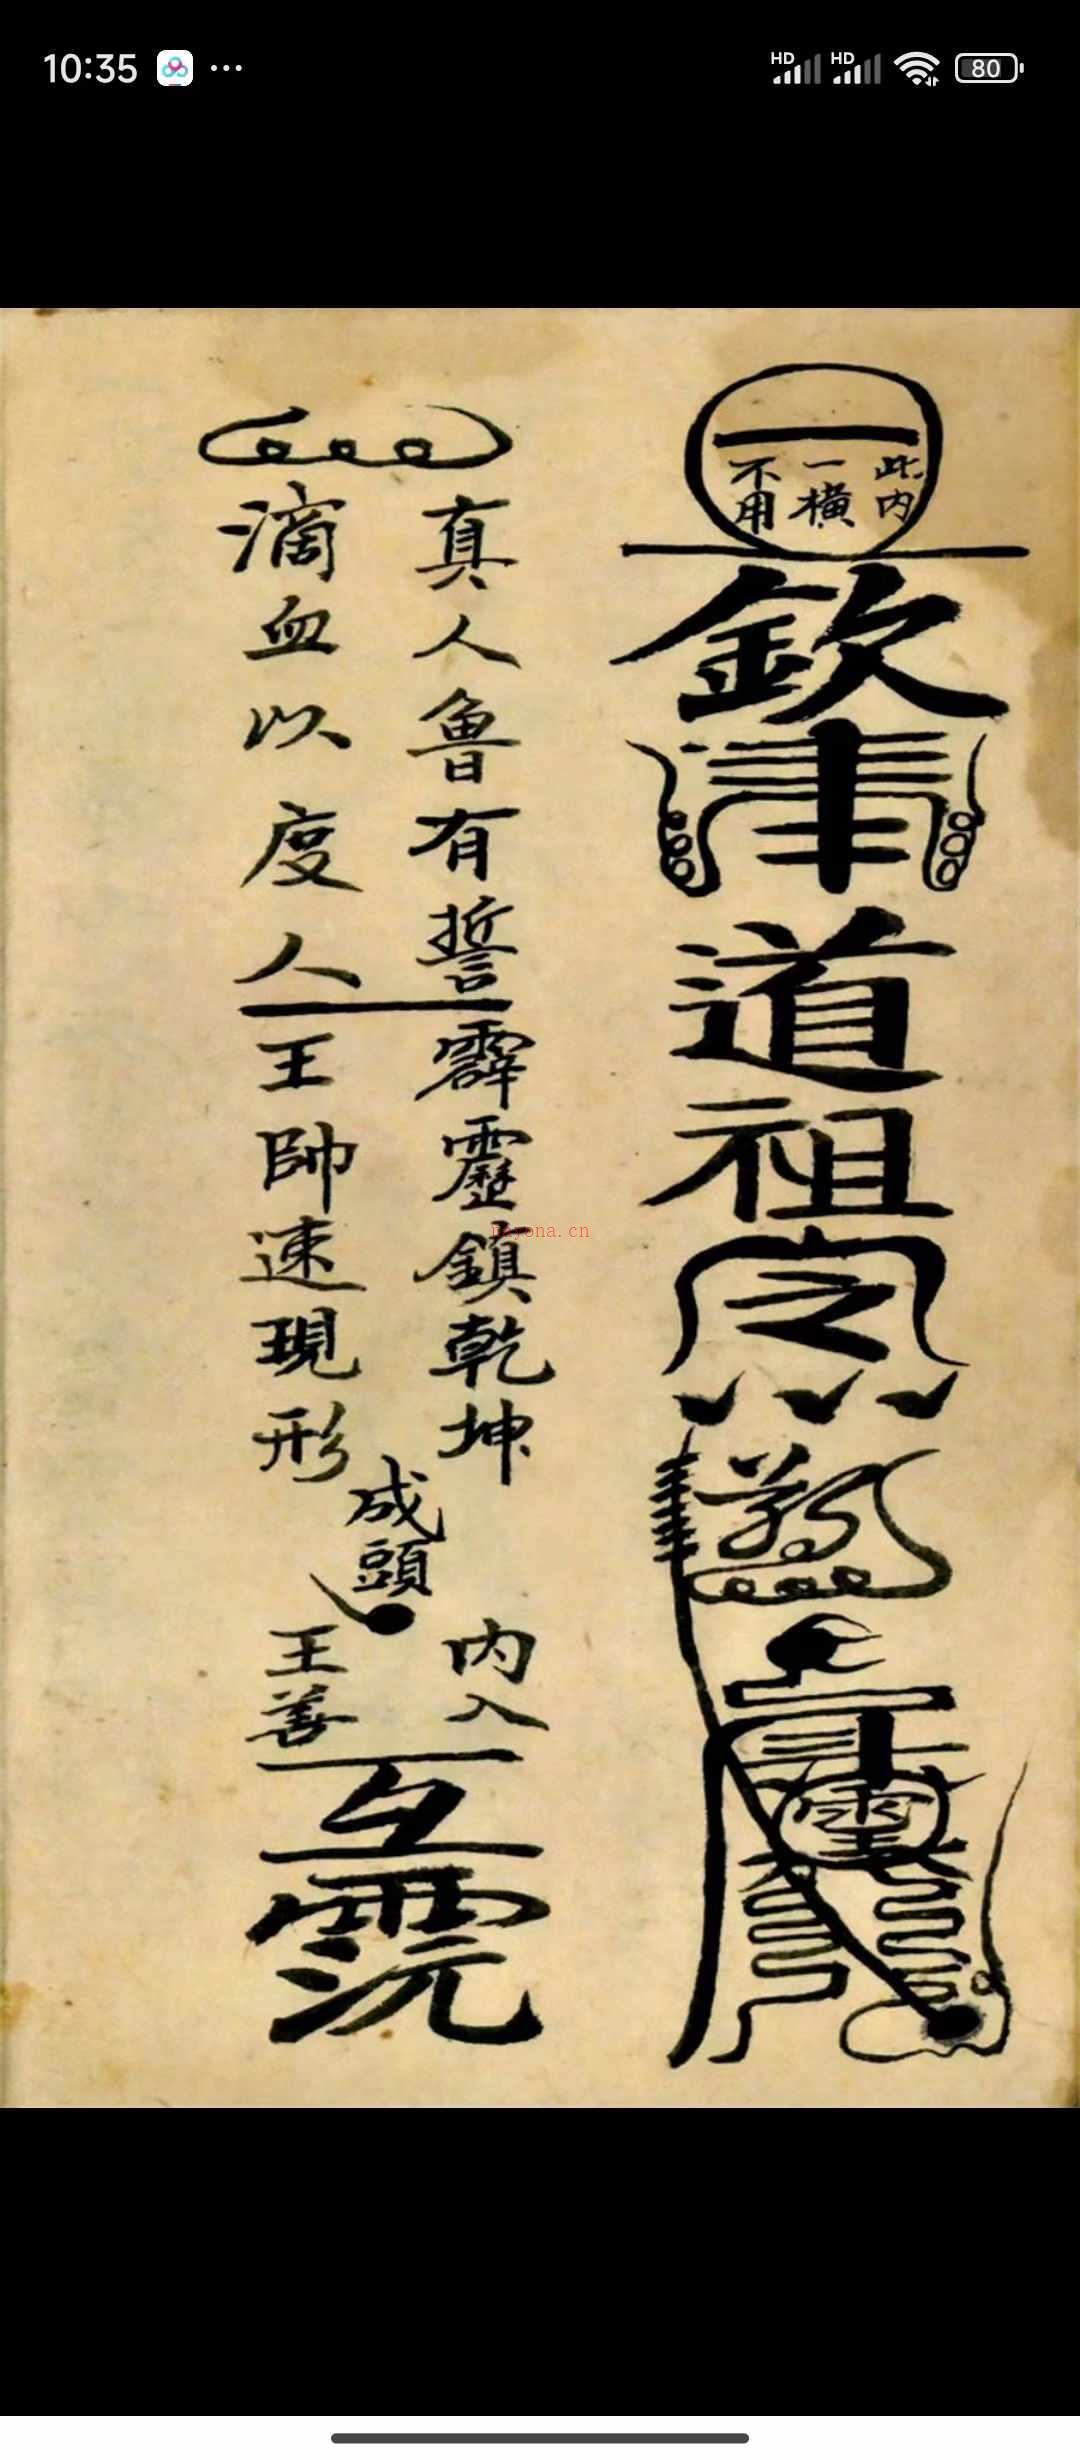 10:35
HD HD 80
此內
一橫
不用
欽奉道祖令
真人魯有誓
滴血以度人
霹靂鎮乾坤
王帥速現形
成頭
內入
王善
nayona.cn